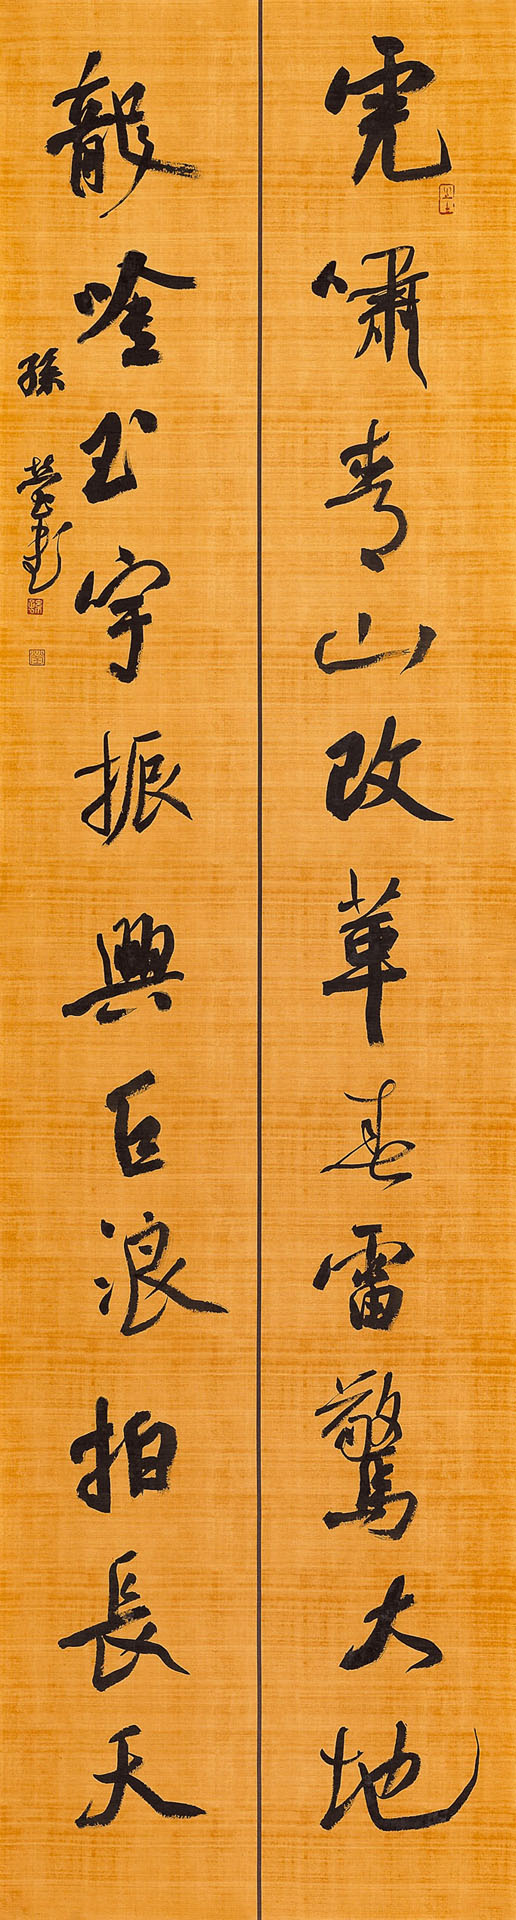 虎啸青山改革春雷驚大地
龍吟玉宇振興巨浪拍長天
孫